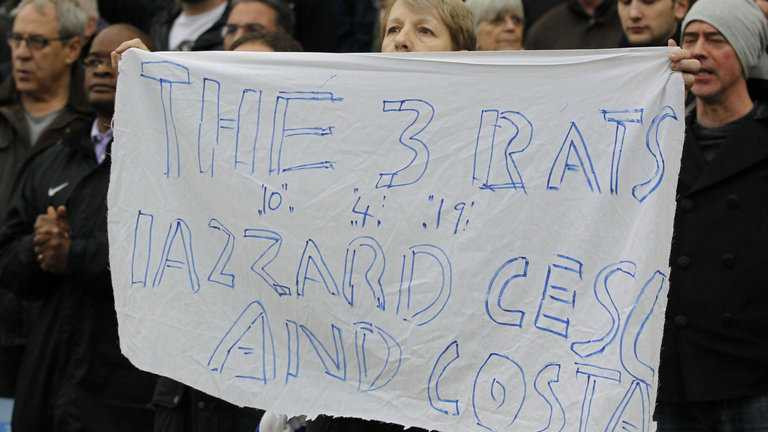 THE 3 RATS
"10" "4" "19"
IAZZARD CESC
AND COSTA